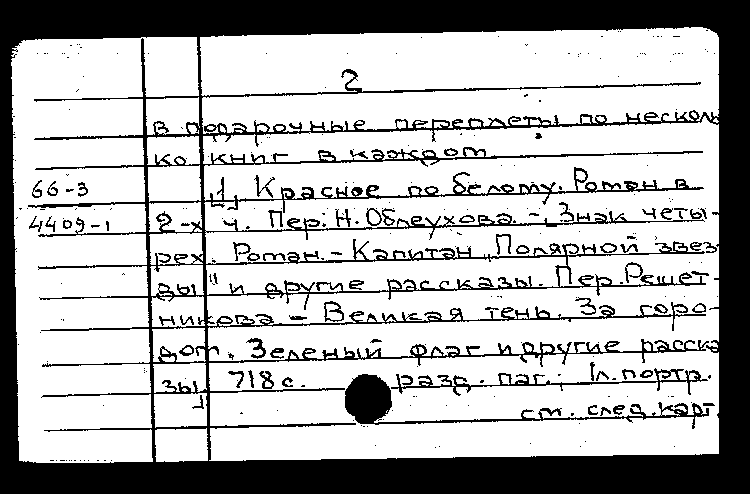 2
в подарочные переплеты по несколь
ко книг в каждом
66-3 [1] Красное по белому. Роман в
4409-1 2-х ч. Пер. Н. Облеухова. - Знак четы-
рех. Роман. - Капитан "Полярной звез-
ды" и другие рассказы. Пер. Решет-
никова. - Великая тень. За горо-
дом. Зеленый флаг и другие расска
зы] 718 с. разд. паг.; 1 л. портр.
см. след. карт.